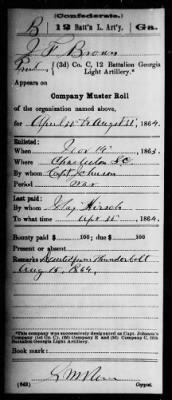 (Confederate.)
B 12 Batt'n L. Art'y. Ga.
J F Brown
(3d) Co. C, 12 Battalion Georgia
Light Artillery.*
Appears on
Company Muster Roll
of the organization named above,
for April 30 to August 31, 1864.
Enlisted:
When Nov 19, 1863.
Where Charleston S C
By whom Capt Johnson
Period war
Last paid:
By whom Maj Hirsch
To what time Apr 30, 1864.
Bounty paid $ 100; due $ 100
Present or absent
Remarks: Deserted from Thunderbolt
Aug 15, 1864.
*This company was successively designated as Capt. Johnson's
Company (3d) Co. C), (3d) Company E and (3d) Company C, 12th
Battalion Georgia Light Artillery.
Book mark:
(642)
Copyist.